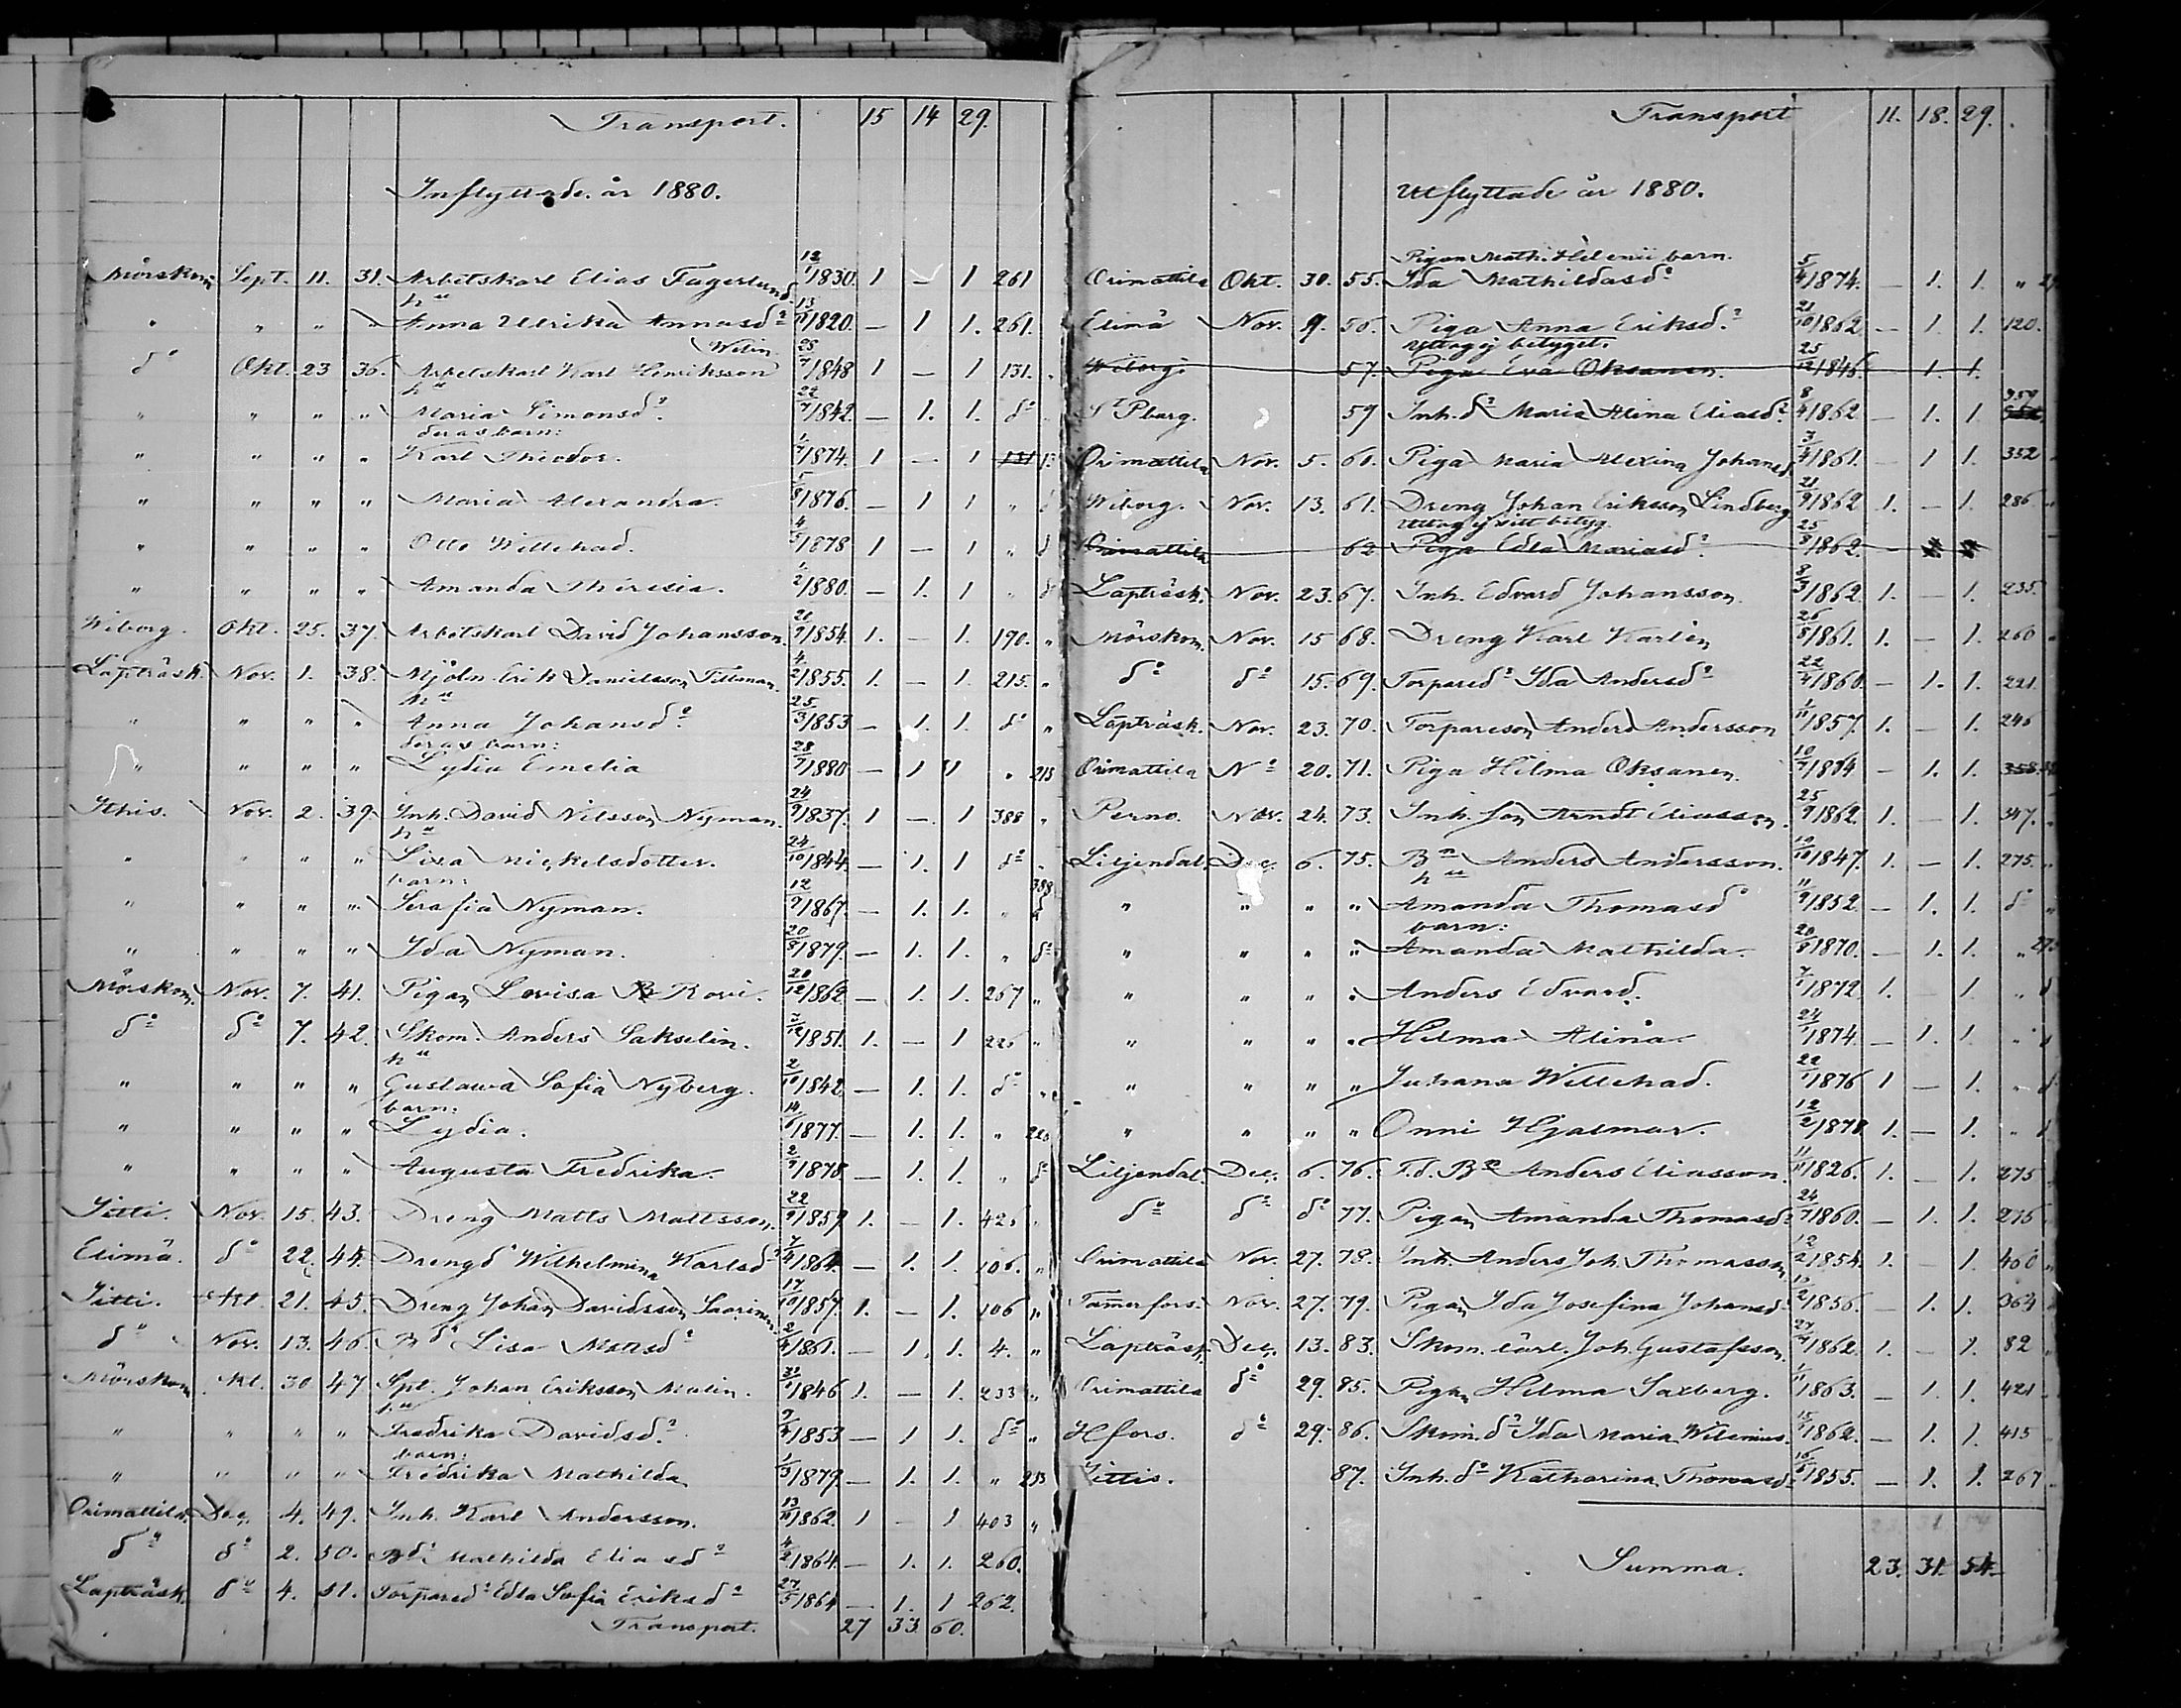 Transport. 15 14 29.
Inflyttade år 1880.
Mörskom Sept. 11. 31. Arbetskarl Elias Fagerlund 12/1 1830. 1 — 1 261
hu
" " " " Anna Ulrika Annasdr 13/11 1820. — 1 1. 261.
Welin
do Okt. 23 36. Arbetskarl Karl Henriksson 25/7 1848 1 — 1 131.
hu
" " " " Maria Simonsdr. 22/7 1842. — 1. 1. do
deras barn:
" " " " Karl Theodor. 1/7 1874. 1 — 1 131
" " " " Maria Alexandra. 5/8 1876. — 1 1 "
" " " " Otto Willehad. 4/5 1878 1 — 1 "
" " " " Amanda Theresia. 1/2 1880. — 1. 1 "
Wiborg. Okt. 25. 37 Arbetskarl David Johansson 21/9 1854. 1. — 1. 190. "
Lapträsk. Nov. 1. 38. Mjöln. Erik Danielsson Tillman. 4/2 1855. 1. — 1. 215. "
hu
" " " " Anna Johansdr 25/3 1853 — 1. 1. do "
deras barn:
" " " " Lydia Emelia 28/7 1880 — 1 1 " 215
Ithis. Nov. 2. 39. Inh. David Nilsson Nyman. 24/9 1837. 1 — 1 388 "
hu
" " " " Lisa Mickelsdotter. 24/10 1844. — 1. 1 do "
barn:
" " " " Serafia Nyman. 12/9 1867. — 1. 1. " 388
" " " " Ida Nyman. 20/8 1879. — 1. 1. " do
Mörskom. Nov. 7. 41. Pigan Lovisa Rovi. 20/12 1862 — 1. 1. 267 "
do do 7. 42. Skom. Anders Sakselin. 3/12 1851. 1. — 1 226 "
hu
" " " " Gustawa Sofia Nyberg. 2/10 1842 — 1. 1. do "
barn:
" " " " Lydia. 14/6 1877. — 1. 1. " 226
" " " " Augusta Fredrika. 2/9 1878. — 1. 1. " do
Jitti. Nov. 15. 43. Dreng Matts Mattsson. 22/9 1859 1. — 1. 426
Elimä. do 22. 44. Drengdr Wilhelmina Karlsdr 7/4 1864. — 1. 1. 106. "
Jitti. Okt. 21. 45. Dreng Johan Davidsson Saarinen. 17/10 1857. 1. — 1. 106 "
do Nov. 13. 46. Bdr Lisa Mattsdr 2/4 1861. — 1. 1. 4. "
Mörskom Okt. 30 47 Spl. Johan Eriksson Malin. 1846 1. — 1. 233 "
hu
" " " " Fredrika Davidsdr. 9/4 1853 — 1 1. do "
barn:
" " " " Fredrika Mathilda 1/3 1879. — 1. 1. " 233
Orimattila. Dec. 4. 49. Inh. Karl Andersson. 13/11 1862. 1 — 1 403 "
do do 2. 50. Bdr Mathilda Eliasdr 4/2 1864. — 1. 1. 260.
Lapträsk. do 4. 51. Torparedr Edla Sofia Eriksdr 27/5 1864 — 1. 1 262.
Transport. 27 33. 60.
Transport 11. 18. 29.
Utflyttade år 1880.
Pigan Math. Helenii barn.
Orimattila Okt. 30. 55. Ida Mathildasdr 5/4 1874. — 1. 1. "
Elimä Nov. 9. 56. Piga Anna Eriksdr. 21/10 1862 — 1. 1. 120.
Uttog ej betyget.
Wiborg. 57. Piga Eva Oksanen. 25/12 1846. 1. 1.
St Pburg. 59 Inh. dr Maria Alina Eliasdr. 8/4 1862 — 1. 1 359
Orimattila Nov. 5. 60. Piga Maria Alexina Johansd. 3/4 1861. — 1 1. 352
Wiborg. Nov. 13. 61. Dreng Johan Eriksson Lindberg 21/9 1862 1. — 1. 286
Uttog ej sitt betyg.
Orimattila 62 Piga Edla Mariasdr. 25/8 1862.
Lapträsk. Nov. 23. 67. Inh. Edvard Johansson. 8/3 1862 1. — 1. 235.
Mörskom. Nov. 15 68. Dreng Karl Karlén 26/8 1861. 1. — 1. 260
do do 15. 69. Torparedr Ida Andersdr 22/4 1860. — 1. 1. 221.
Lapträsk. Nov. 23. 70. Torpareson Anders Andersson 1/11 1857. 1. — 1. 246
Orimattila No 20. 71. Piga Hilma Oksanen. 10/7 1864 — 1. 1. 358
Perno. Nov. 24. 73. Inh. son Arndt Eliasson. 25/9 1862. 1. — 1. 347.
Liljendal. Dec. 6. 75. Bn Anders Andersson. 10/10 1847. 1. — 1. 275.
hu
" " " " Amanda Thomasdr 11/9 1852. — 1. 1. do
barn:
" " " " Amanda Mathilda. 20/8 1870. — 1. 1. " 275
" " " " Anders Edvard. 7/1 1872. 1. — 1. "
" " " " Hilma Alina. 24/1 1874. — 1. 1. "
" " " " Juhana Willehad. 22/1 1876 1 — 1. "
" " " " Onni Hjalmar. 12/2 1878 1. — 1. "
Liljendal. Dec. 6. 76. F.d. Bn Anders Eliasson. 11/11 1826. 1. — 1. 275
do do do 77. Pigan Amanda Thomasdr 24/7 1860. — 1. 1. 275
Orimattila Nov. 27. 78. Inh. Anders Joh. Thomasson 12/2 1854. 1. — 1. 400
Tammerfors. Nov. 27. 79. Pigan Ida Josefina Johansd. 1856. — 1. 1. 364
Lapträsk. Dec. 13. 83. Skom. lärl. Joh. Gustafsson. 1862. 1. — 1. 82
Orimattila do 29. 85. Pigan Hilma Saxberg. 1/11 1863. — 1. 1. 421
Hfors. do 29. 86. Skom. dr Ida Maria Wilenius. 1862. — 1. 1. 415
Jittis. 87. Inh. dr Katharina Thomasd. 1855. — 1. 1. 267
Summa. 23. 31. 54.